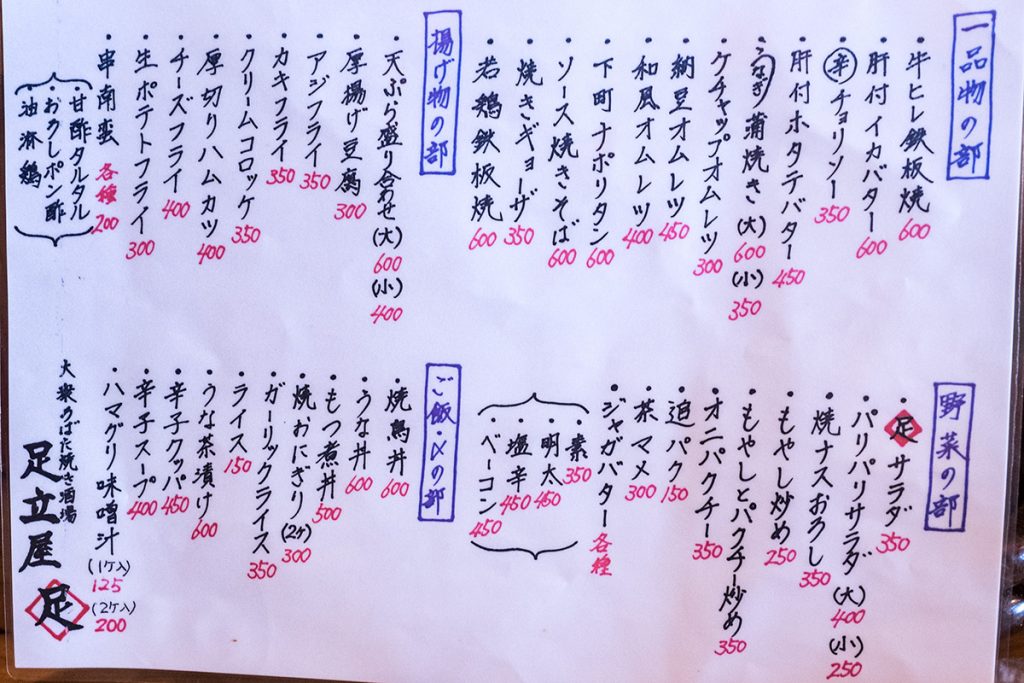 一品物の部
・牛ヒレ鉄板焼 600
・肝付イカバター 600
・辛チョリソー 350
・肝付ホタテバター 450
・うなぎ蒲焼き(大)600(小)350
・ケチャップオムレツ 300
・納豆オムレツ 450
・和風オムレツ 400
・下町ナポリタン 600
・ソース焼きそば 600
・焼きギョーザ 350
・若鶏鉄板焼 600
揚げ物の部
・天ぷら盛り合わせ(大)600(小)400
・厚揚げ豆腐 300
・アジフライ 350
・カキフライ 350
・クリームコロッケ 350
・厚切りハムカツ 400
・チーズフライ 400
・生ポテトフライ 300
・串南蛮 各種 200
・甘酢タルタル
・おろしポン酢
・油淋鶏
野菜の部
・足サラダ 350
・パリパリサラダ(大)400(小)250
・焼ナスおろし 350
・もやし炒め 250
・もやしとパクチー炒め 350
・オニパクチー 350
・追パク 150
・茶マメ 300
・ジャガバター 各種
・素 350
・明太 450
・塩辛 450
・ベーコン 450
ご飯・〆の部
・焼鳥丼 600
・うな丼 600
・もつ煮丼 500
・焼おにぎり(2ヶ)300
・ガーリックライス 350
・ライス 150
・うな茶漬け 600
・辛子クッパ 450
・辛子スープ 400
・ハマグリ味噌汁(1ケ入)125(2ケ入)200
大衆ろばた焼き酒場
足立屋 足